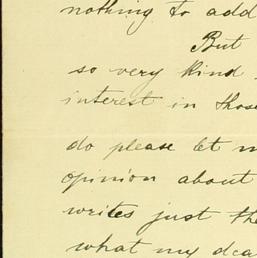 nothing to add
But
so very kind
interest in those
do please let m
opinion about
writes just the
what my dea